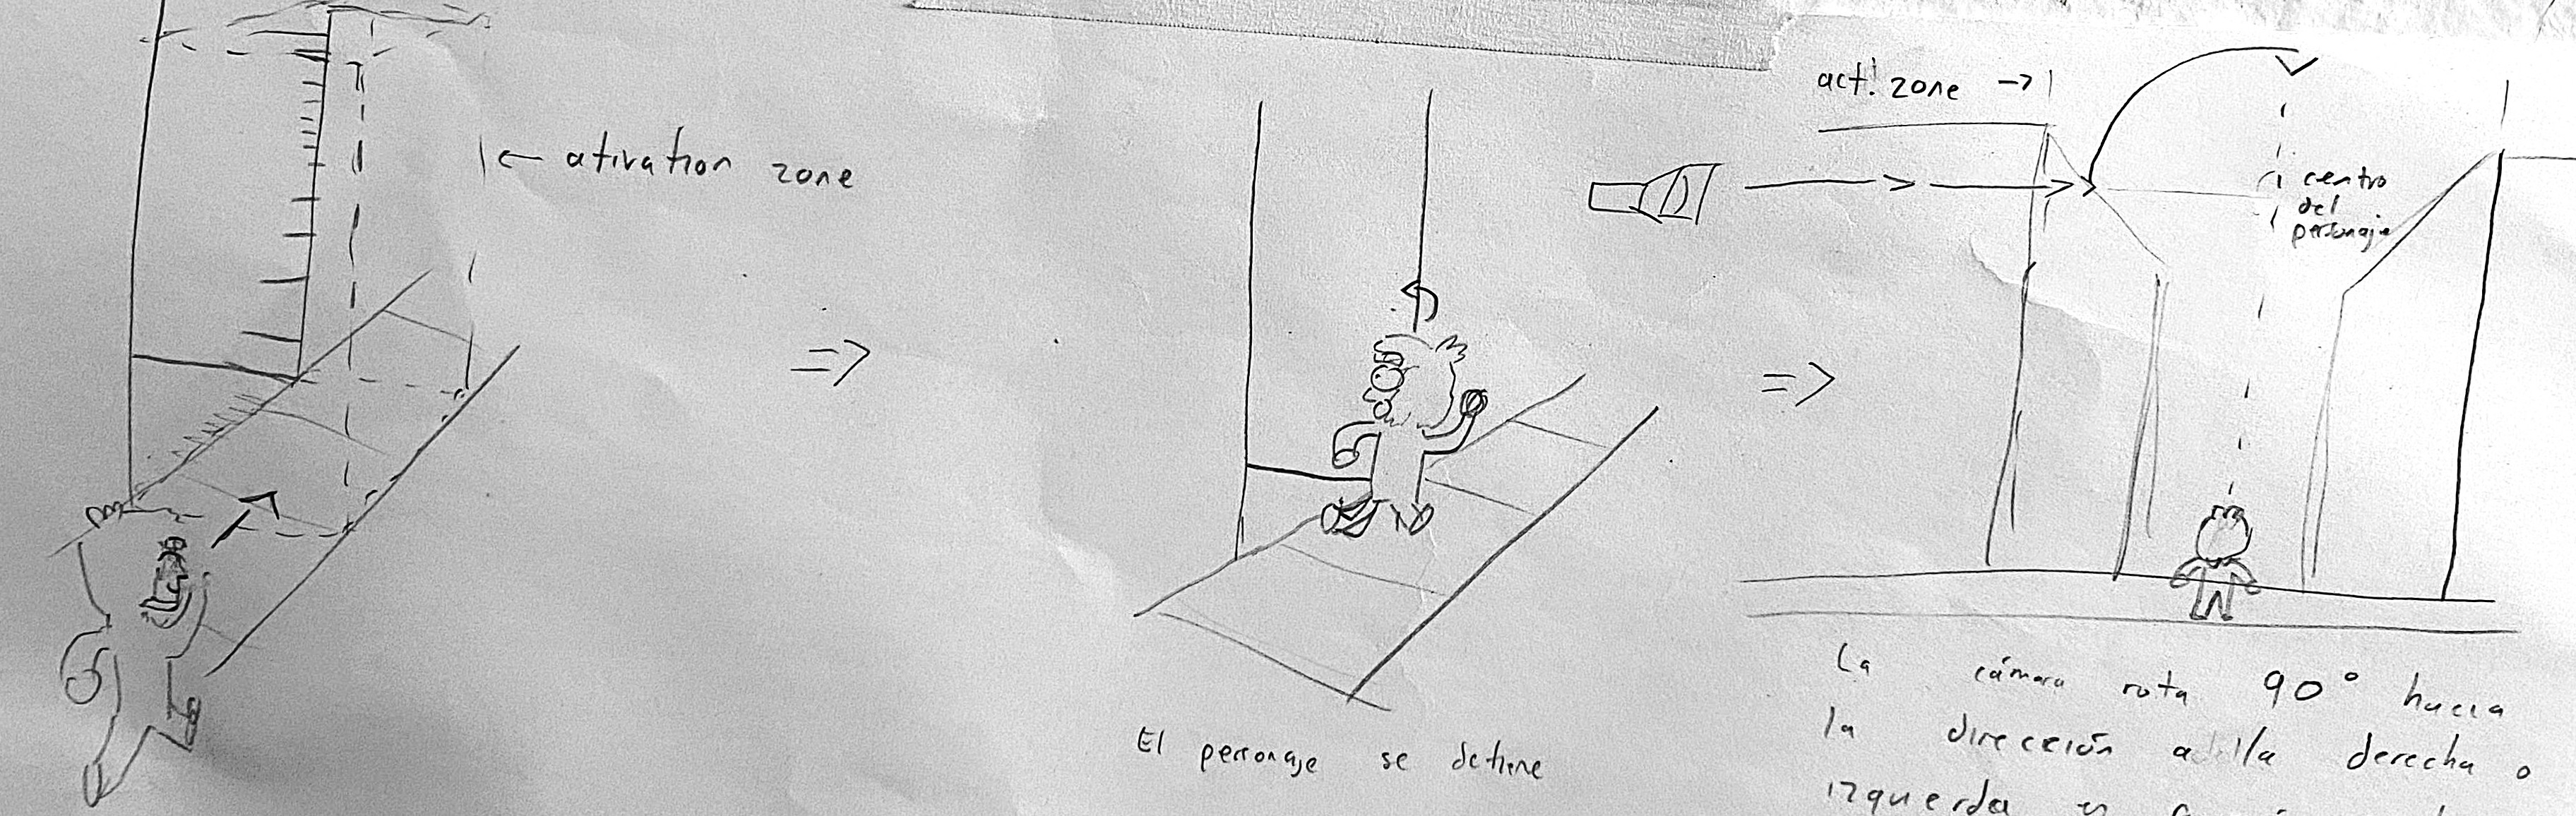 ← ativation zone
=>
El personaje se detiene
=>
act. zone →
centro
del
personaje
La cámara rota 90° hacia
la dirección a la derecha o
izquierda